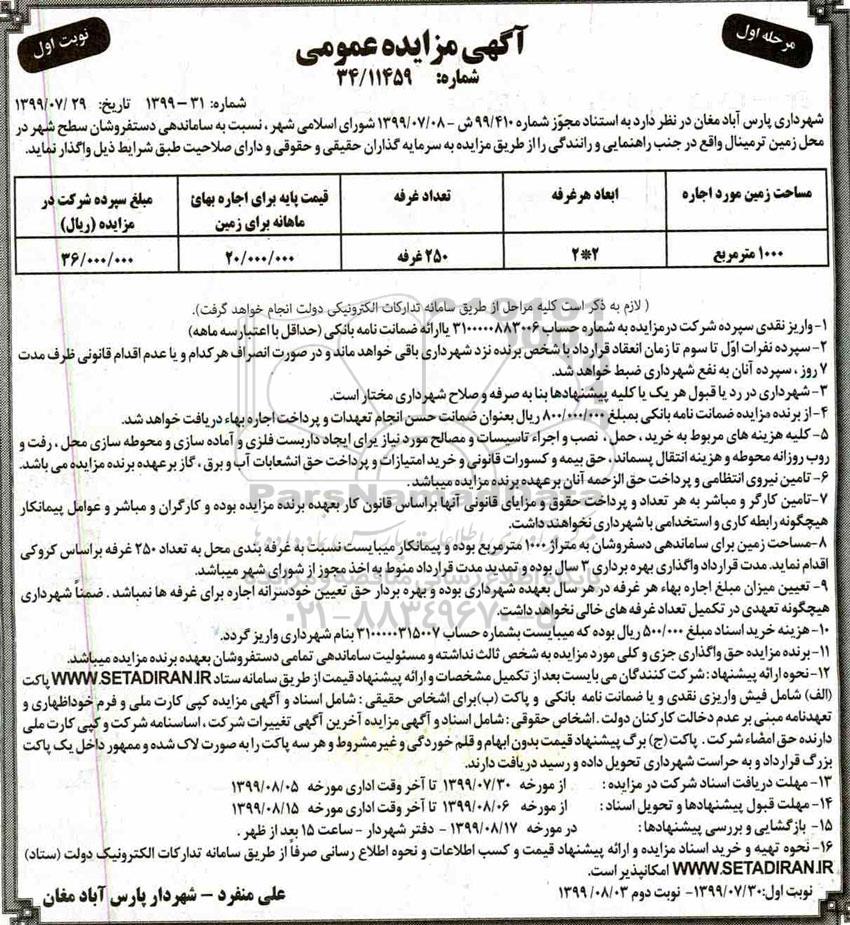 مرحله اول
نوبت اول
آگهی مزایده عمومی
شماره: ۳۴/۱۱۴۵۹
شماره: ۳۱ - ۱۳۹۹ تاریخ: ۱۳۹۹/۰۷/۲۹
شهرداری پارس آباد مغان در نظر دارد به استناد مجوّز شماره ۹۹/۴۱۰ ش - ۱۳۹۹/۰۷/۰۸ شورای اسلامی شهر ، نسبت به ساماندهی دستفروشان سطح شهر در
محل زمین ترمینال واقع در جنب راهنمایی و رانندگی را از طریق مزایده به سرمایه گذاران حقیقی و حقوقی و دارای صلاحیت طبق شرایط ذیل واگذار نماید.
مساحت زمین مورد اجاره ابعاد هرغرفه تعداد غرفه قیمت پایه برای اجاره بهائ ماهانه برای زمین مبلغ سپرده شرکت در مزایده (ریال)
۱۰۰۰ مترمربع ۲*۲ ۲۵۰ غرفه ۲۰/۰۰۰/۰۰۰ ۳۶/۰۰۰/۰۰۰
( لازم به ذکر است کلیه مراحل از طریق سامانه تدارکات الکترونیکی دولت انجام خواهد گرفت).
۱- واریز نقدی سپرده شرکت درمزایده به شماره حساب ۳۱۰۰۰۰۰۸۸۳۰۰۶ یاارائه ضمانت نامه بانکی (حداقل با اعتبارسه ماهه)
۲- سپرده نفرات اوّل تا سوم تا زمان انعقاد قرارداد با شخص برنده نزد شهرداری باقی خواهد ماند و در صورت انصراف هرکدام و یا عدم اقدام قانونی ظرف مدت
۷ روز ، سپرده آنان به نفع شهرداری ضبط خواهد شد.
۳- شهرداری در رد یا قبول هر یک یا کلیه پیشنهادها بنا به صرفه و صلاح شهرداری مختار است.
۴- از برنده مزایده ضمانت نامه بانکی بمبلغ ۸۰۰/۰۰۰/۰۰۰ ریال بعنوان ضمانت حسن انجام تعهدات و پرداخت اجاره بهاء دریافت خواهد شد.
۵- کلیه هزینه های مربوط به خرید ، حمل ، نصب و اجراء تاسیسات و مصالح مورد نیاز برای ایجاد داربست فلزی و آماده سازی و محوطه سازی محل ، رفت و
روب روزانه محوطه و هزینه انتقال پسماند ، حق بیمه و کسورات قانونی و خرید امتیازات و پرداخت حق انشعابات آب و برق ، گاز بر عهده برنده مزایده می باشد.
۶- تامین نیروی انتظامی و پرداخت حق الزحمه آنان برعهده برنده مزایده میباشد.
۷- تامین کارگر و مباشر به هر تعداد و پرداخت حقوق و مزایای قانونی آنها براساس قانون کار بعهده برنده مزایده بوده و کارگران و مباشر و عوامل پیمانکار
هیچگونه رابطه کاری و استخدامی با شهرداری نخواهند داشت.
۸- مساحت زمین برای ساماندهی دسفروشان به متراژ ۱۰۰۰ مترمربع بوده و پیمانکار میبایست نسبت به غرفه بندی محل به تعداد ۲۵۰ غرفه براساس کروکی
اقدام نماید. مدت قرارداد واگذاری بهره برداری ۳ سال بوده و تمدید مدت قرارداد منوط به اخذ مجوز از شورای شهر میباشد.
۹- تعیین میزان مبلغ اجاره بهاء هر غرفه در هر سال بعهده شهرداری بوده و بهره بردار حق تعیین خودسرانه اجاره برای غرفه ها نمباشد . ضمناً شهرداری
هیچگونه تعهدی در تکمیل تعداد غرفه های خالی نخواهد داشت.
۱۰- هزینه خرید اسناد مبلغ ۵۰۰/۰۰۰ ریال بوده که میبایست بشماره حساب ۳۱۰۰۰۰۰۳۱۵۰۰۷ بنام شهرداری واریز گردد.
۱۱- برنده مزایده حق واگذاری جزی و کلی مورد مزایده به شخص ثالث نداشته و مسئولیت ساماندهی تمامی دستفروشان بعهده برنده مزایده میباشد.
۱۲- نحوه ارائه پیشنهاد: شرکت کنندگان می بایست بعد از تکمیل مشخصات و ارائه پیشنهاد قیمت از طریق سامانه ستاد WWW.SETADIRAN.IR پاکت
(الف) شامل فیش واریزی نقدی و یا ضمانت نامه بانکی و پاکت (ب) برای اشخاص حقیقی : شامل اسناد و آگهی مزایده کپی کارت ملی و فرم خوداظهاری و
تعهدنامه مبنی بر عدم دخالت کارکنان دولت . اشخاص حقوقی : شامل اسناد و آگهی مزایده آخرین آگهی تغییرات شرکت ، اساسنامه شرکت و کپی کارت ملی
دارنده حق امضاء شرکت . پاکت (ج) برگ پیشنهاد قیمت بدون ابهام و قلم خوردگی و غیر مشروط و هر سه پاکت را به صورت لاک شده و ممهور داخل یک پاکت
بزرگ قرارداد و به حراست شهرداری تحویل داده و رسید دریافت دارند.
۱۳- مهلت دریافت اسناد شرکت در مزایده : از مورخه ۱۳۹۹/۰۷/۳۰ تا آخر وقت اداری مورخه ۱۳۹۹/۰۸/۰۵
۱۴- مهلت قبول پیشنهادها و تحویل اسناد : از مورخه ۱۳۹۹/۰۸/۰۶ تا آخر وقت اداری مورخه ۱۳۹۹/۰۸/۱۵
۱۵- بازگشایی و بررسی پیشنهادها : در مورخه ۱۳۹۹/۰۸/۱۷ - دفتر شهردار - ساعت ۱۵ بعد از ظهر .
۱۶- نحوه تهیه و خرید اسناد مزایده و ارائه پیشنهاد قیمت و کسب اطلاعات و نحوه اطلاع رسانی صرفاً از طریق سامانه تدارکات الکترونیک دولت (ستاد)
WWW.SETADIRAN.IR امکانپذیر است.
نوبت اول: ۱۳۹۹/۰۷/۳۰ - نوبت دوم ۱۳۹۹/۰۸/۰۳
علی منفرد - شهردار پارس آباد مغان
ParsNamadData
۰۲۱-۸۸۳۴۹۶۷۰-۵